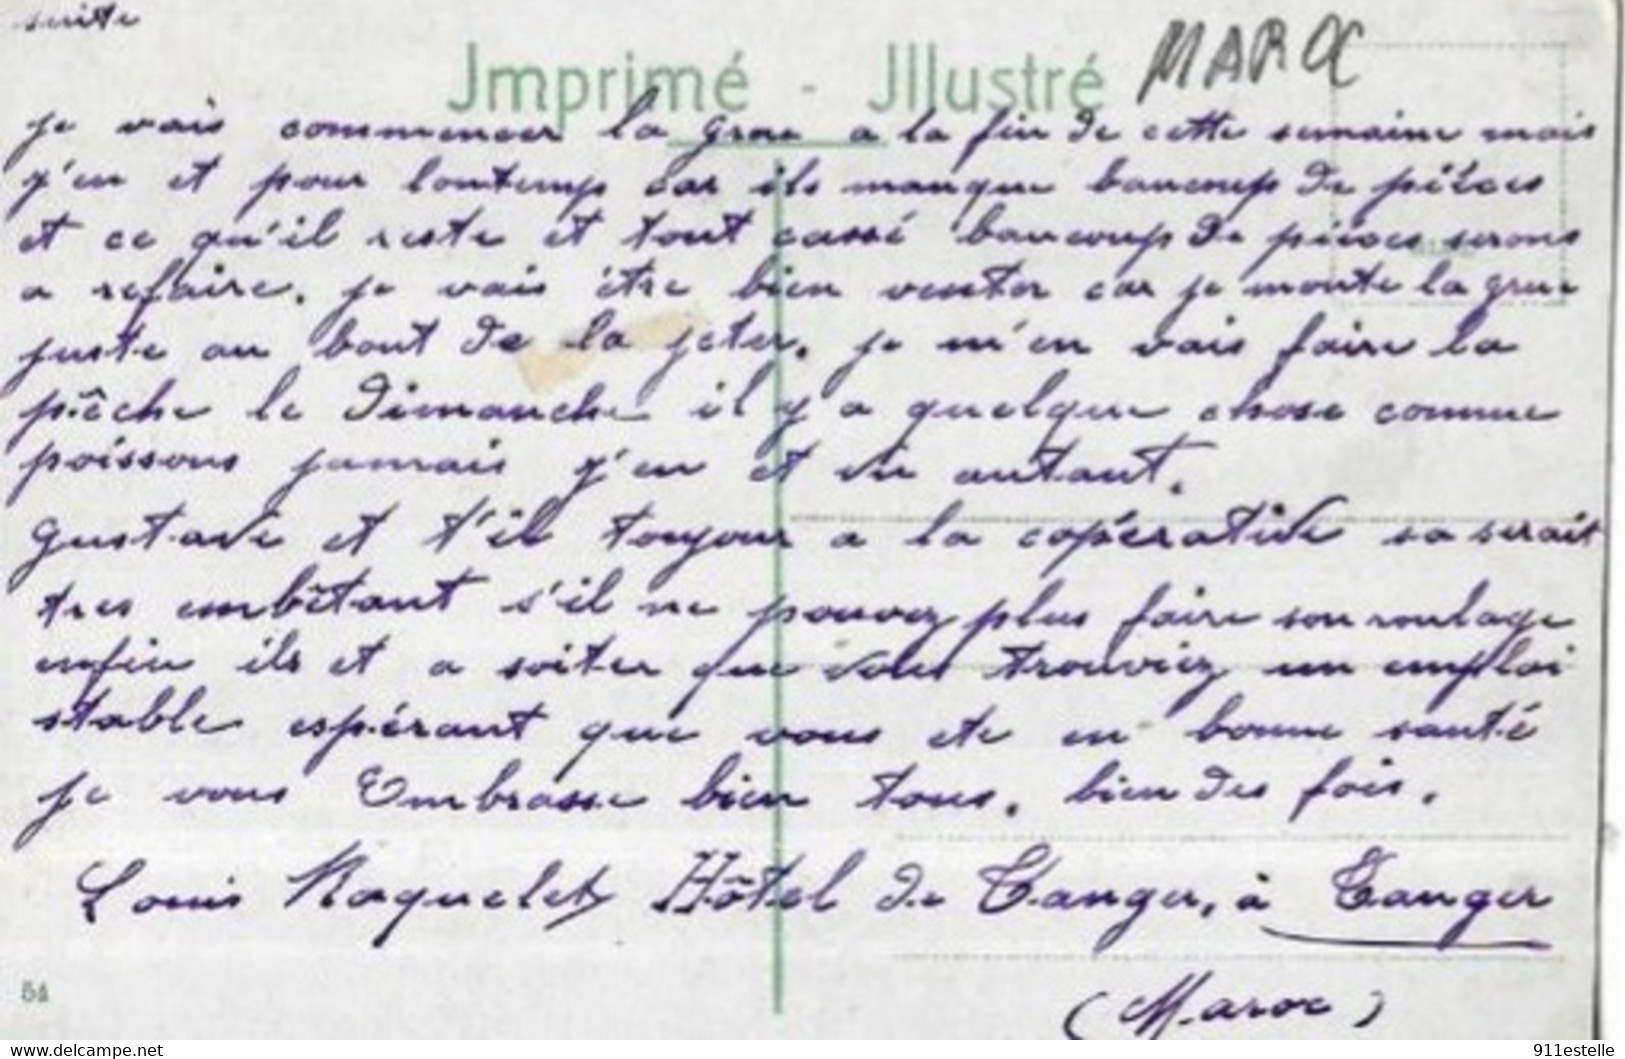 suite
Imprimé - Illustré
MAROC
je vais commencer la grue a la fin de cette semaine mais
j'en et pour lontemp car ils manque baucoup de pièces
et ce qu'il reste et tout cassé baucoup de pièces serons
a refaire. je vais être bien venter car je monte la grue
juste au bout de la jeter. je m'en vais faire la
pêche le Dimanche il y a quelque chose comme
poissons jamais j'en et vu autant.
gustave et t'il toujour a la copérative sa serait
tres embêtant s'il ne pouvez plus faire son roulage
enfin ils et a soiter que vous trouviez un emploi
stable espérant que vous ete en bonne santé
je vous Embrasse bien tous. bien des fois.
Louis Roquelet Hôtel de Tanger, à Tanger
(Maroc)
54
www.delcampe.net
911estelle